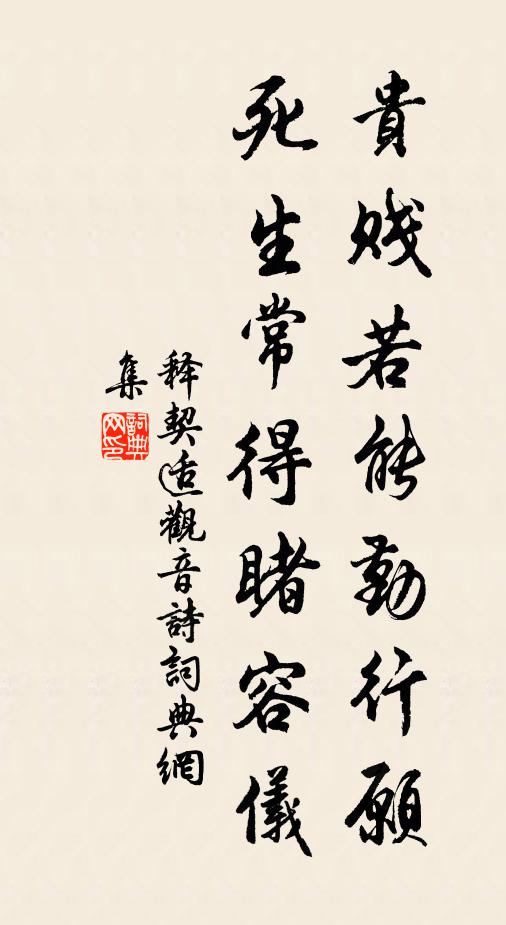 貴賤若能勤行願
死生常得睹容儀
释契适觀音詩詞典網
集
詞典
网印